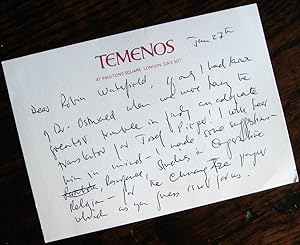 TEMENOS
47 PAULTONS SQUARE, LONDON SW3 5DT
Jan 27th
Dear Robin Waterfield, If only I had known
of Dr. Ostwald when we were having the
greatest trouble in finding an adequate
translator for Josef Pieper! I will bear
him in mind – I made some suggestions –
Resurgence, Studies in Comparative
Religion – for the Chuang Tze paper
which as you guess is not for us.